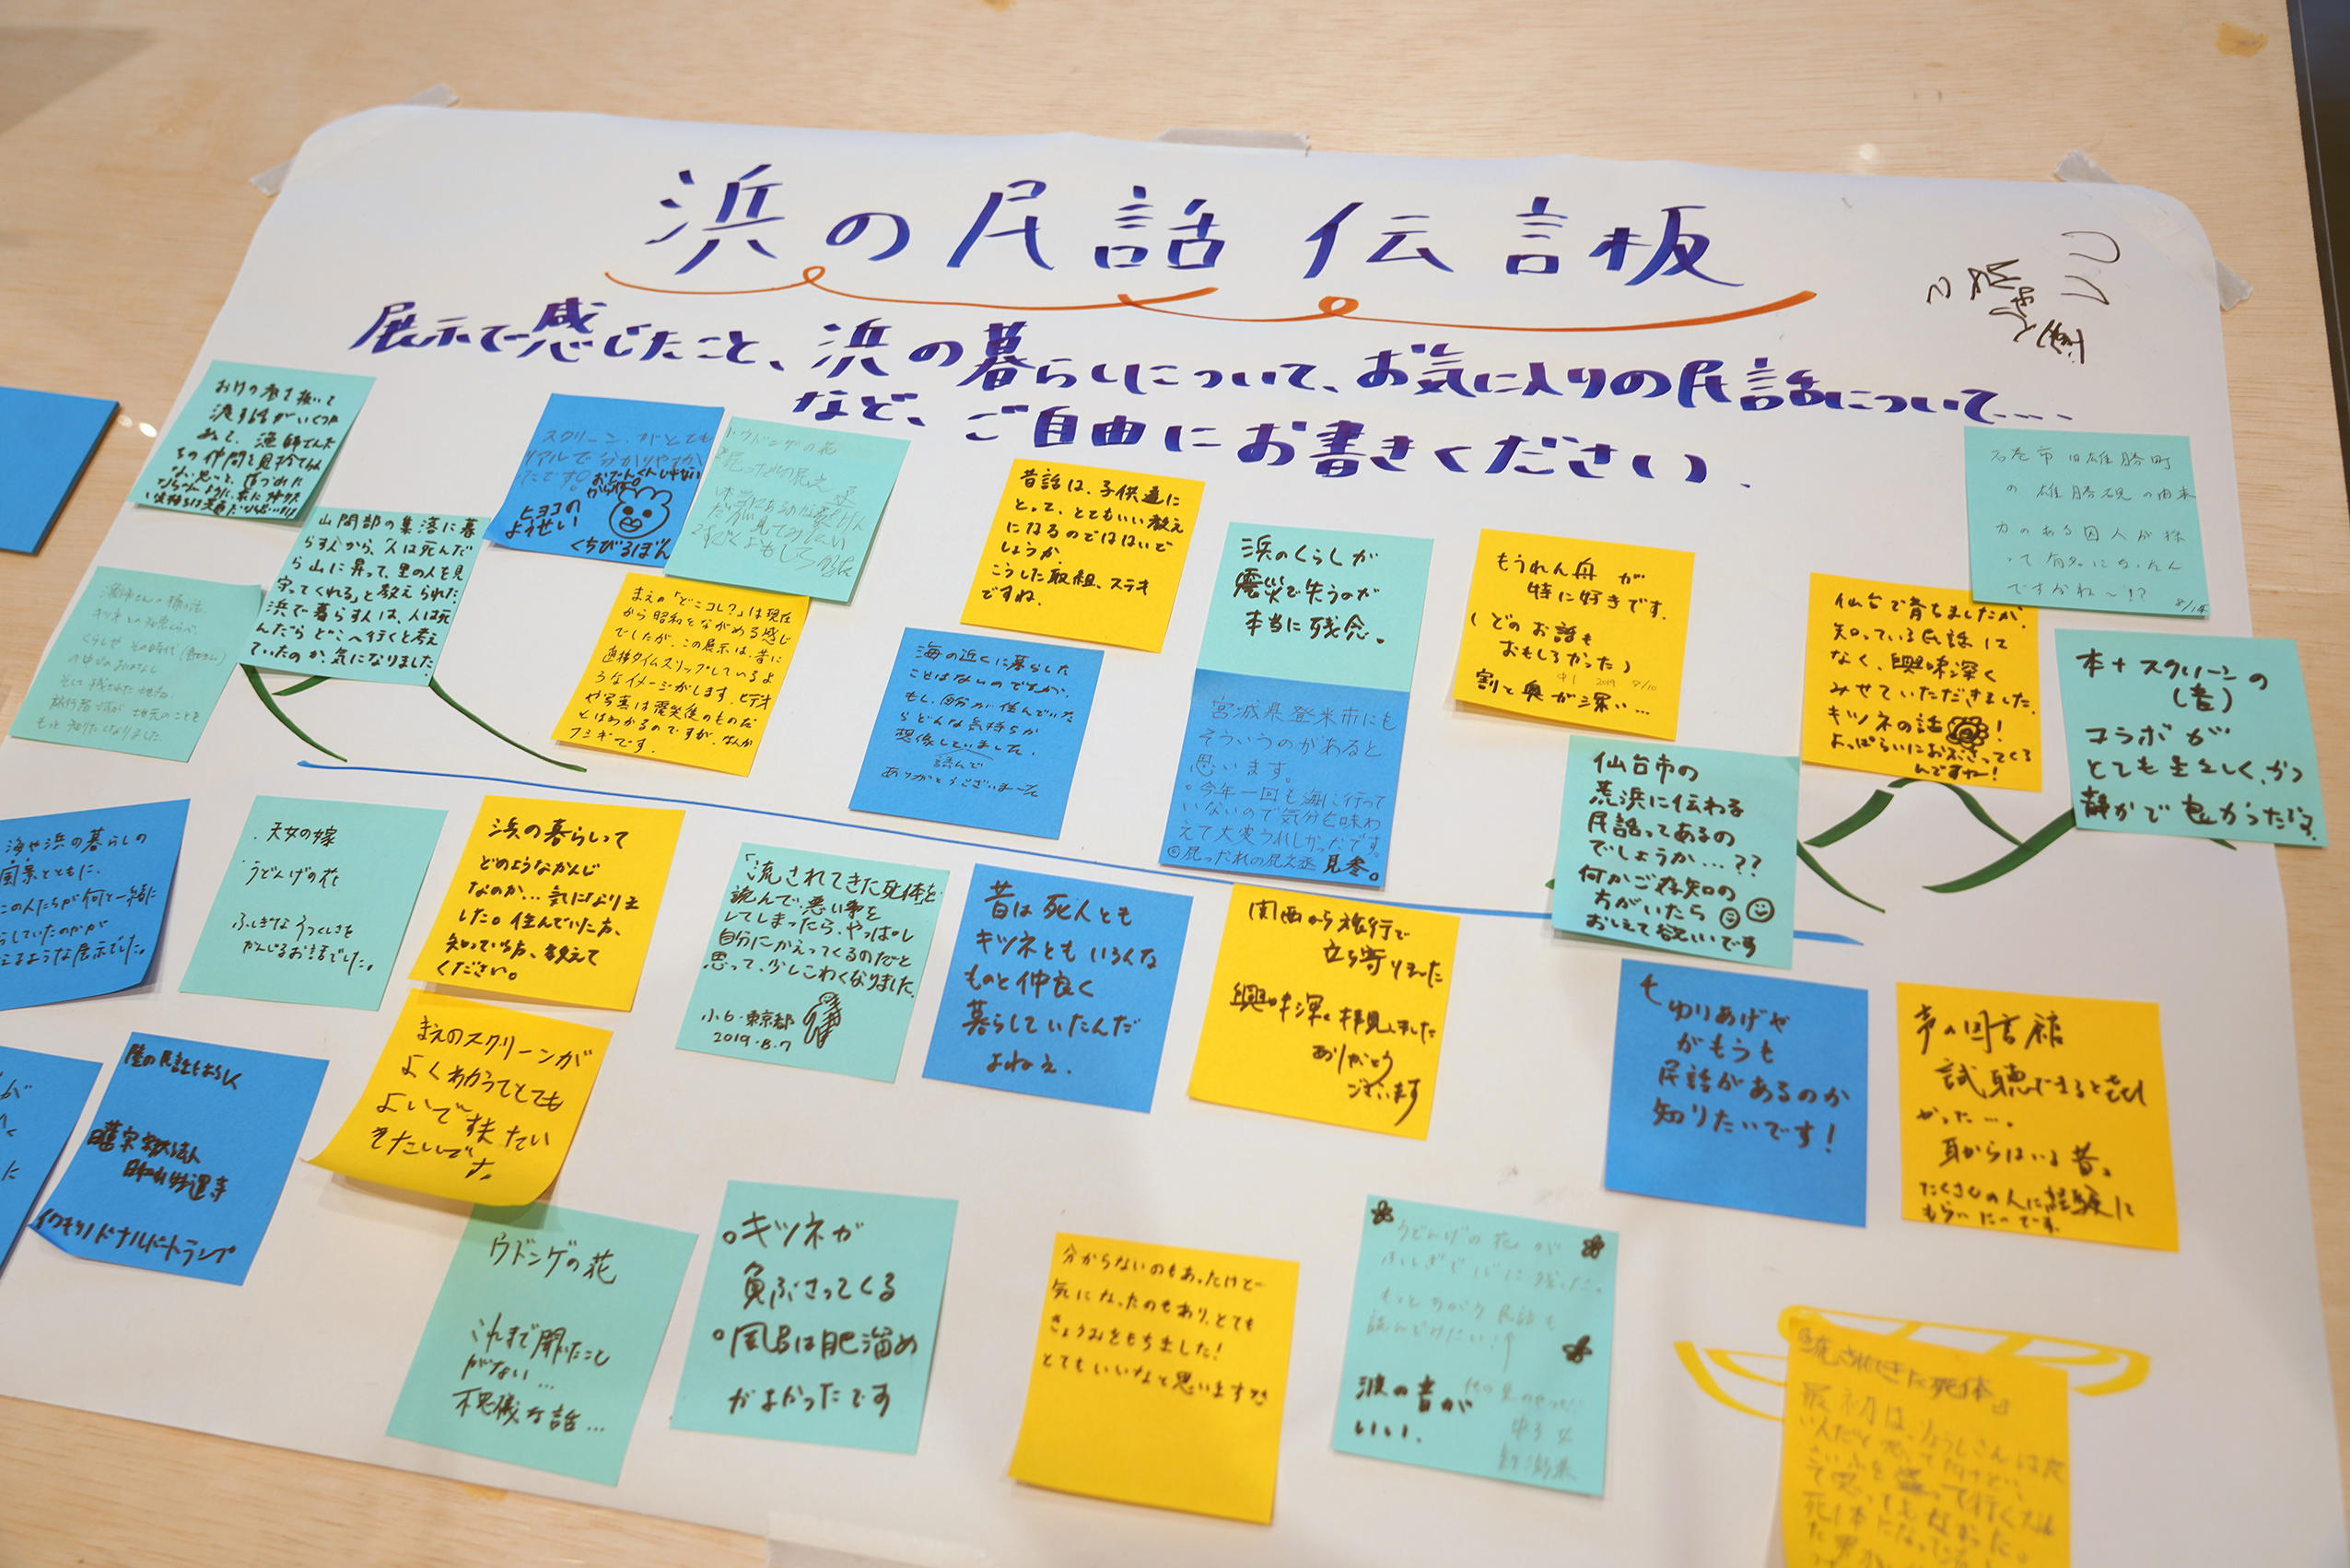 浜の民話 伝言板
展示で感じたこと、浜の暮らしについて、お気に入りの民話について....
など、ご自由にお書きください.
山間部の集落に暮
らす人から、「人は死んだ
ら山に昇って、里の人を見
守ってくれる」と教えられた.
浜で暮らす人は、人は死
んだらどこへ行くと考え
ていたのか、気になりました.
スクリーン、がとても
リアルで分かりやすか
ったです。
おでんくんじゃない
からね。
ヒヨコの
ようせい
くちびるぼん
まえの「どこコレ?」は現在
から昭和をながめる感じ
でしたが、この展示は、昔に
直接タイムスリップしているよ
うなイメージがします。ビデオ
や写真は震災後のものだ
とはわかるのですが、なんか
フシギです。
昔話は、子供達に
とって、とてもいい教え
になるのではないで
しょうか.
こうした取組、ステキ
ですね.
海の近くに暮らした
ことはないのですが、
もし、自分が住んでいた
らどんな気持ちか
想像していました.
読んで
ありがとうございました
浜のくらしが
震災で失うのが
本当に残念。
宮城県登米市にも
そういうのがあると
思います。
今年一回も海に行って
いないので気分を味わ
えて大変うれしかったです。
屁ったれの屁文丞 見参。
もうれん舟が
特に好きです.
(どのお話も
おもしろかった)
中1 2019 8/10
割と奥が深い...
石巻市旧雄勝町
の雄勝硯の由来
力のある囚人が採
って有名になったん
ですかね〜!?
8/14
仙台で育ちましたが、
知っている民話は
なく、興味深く
みせていただきました.
キツネの話 !
よっぱらいにおぶさってくる
んですねー!
本+スクリーンの
(音)
コラボが
とても生々しく、かつ
静かで良かったです.
仙台市の
荒浜に伝わる
民話ってあるの
でしょうか...??
何かご存知の
方がいたら
おしえて欲しいです
海や浜の暮らしの
風景とともに、
この人たちが何と一緒に
らしていたのかが
えるような展示でした。
天女の嫁
うどんげの花
ふしぎなうつくしさを
かんじるお話でした。
浜の暮らしって
どのようなかんじ
なのか...気になりま
した。住んでいた方、
知っている方、教えて
ください。
「流されてきた死体」を
読んで、悪い事を
してしまったら、やっぱり
自分にかえってくるのだと
思って、少しこわくなりました.
小6・東京都
2019.8.7
昔は死人とも
キツネともいろんな
ものと仲良く
暮らしていたんだ
よねぇ.
関西から旅行で
立ち寄りました
興味深く拝見しました
ありがとう
ございます
ゆりあげや
がもうも
民話があるのか
知りたいです!
声の図書館
試聴できると良
かった....
耳からはいる昔。
たくさんの人に経験して
もらいたいです.
陸の民話もよろしく
イワモリノドナルドトランプ
まえのスクリーンが
よくわかってとても
よいです またい
きたいです
ウドンゲの花
これまで聞いたこと
がない...
不思議な話...
キツネが
負ぶさってくる
風呂は肥溜め
がよかったです
分からないのもあったけど
気になったのもあり、とても
きょうみをもちました!
とてもいいなと思います
うどんげの花が
ふしぎで心に残った.
もっとながい民話も
読んでみたい!
波の音が
いい.
『流されてきた死体』
最初は、りょうしさんは良
い人だと思ってたけど、